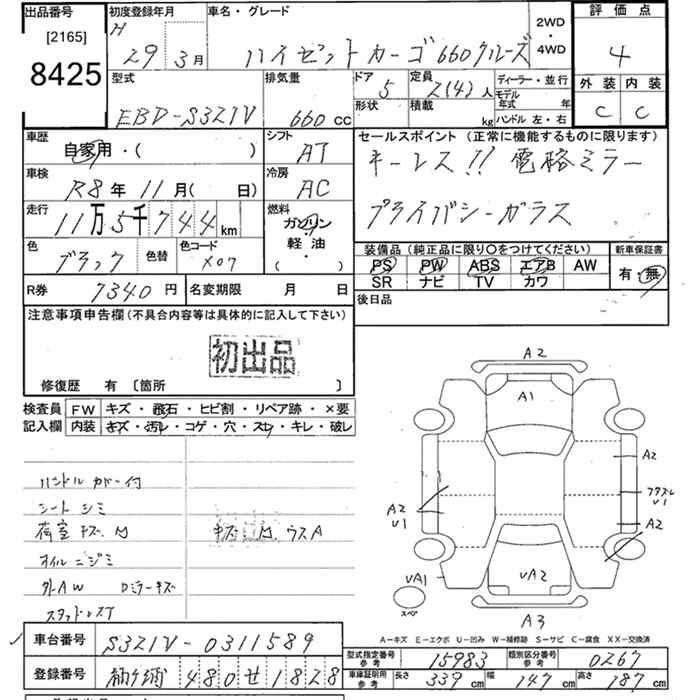 出品番号
[2165]
8425
初度登録年月
H 29 3月
車名・グレード
ハイゼットカーゴ660クルーズ
2WD
・
4WD
評価点
4
外装 内装
C C
型式
EBD-S321V
排気量
660 cc
ドア
5
形状
定員
2(4)人
積載
kg
ディーラー・並行
モデル年式 年
ハンドル 左・右
車歴
自家用・( )
シフト
AT
車検
R8年11月( 日)
冷房
AC
走行
11万5千744km
燃料
ガソリン
軽油
( )
色
ブラック
色替
色コード
X07
R券
7340円
名変期限 月 日
セールスポイント(正常に機能するものに限ります)
キーレス!! 電格ミラー
プライバシーガラス
装備品(純正品に限り○をつけてください)
PS PW ABS エアB AW
SR ナビ TV カワ
新車保証書
有・無
後日品
注意事項申告欄(不具合内容等は具体的に記入して下さい)
初出品
修復歴 有〔箇所 〕
検査員記入欄
FW キズ・飛石・ヒビ割・リペア跡・×要
内装 キズ・汚レ・コゲ・穴・スレ・キレ・破レ
ハンドルカバー付
シートシミ
荷室キズM
キズM、ウスA
オイルニジミ
外AW Dミラーキズ
スタッドレスT
A2
A1
A2
U1
A2
A2
U1
UA1
スペア
UA2
A3
A-キズ E-エクボ U-凹み W-補修跡 S-サビ C-腐食 XX-交換済
車台番号
S321V-0311589
登録番号
480せ1828
型式指定番号
参考
15983
類別区分番号
参考
0267
車庫証明用
参考
長さ 339cm
幅 147cm
高さ 187cm